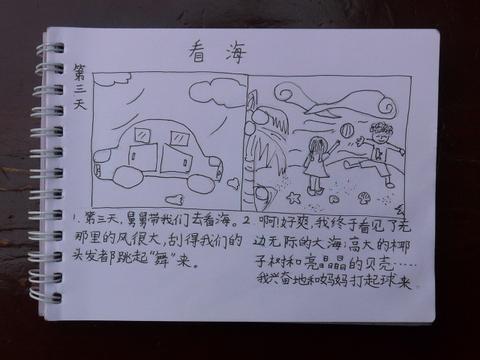 看海
第三天
1. 第三天,舅舅带我们去看海。
那里的风很大,刮得我们的
头发都跳起“舞”来。
2. 啊!好爽,我终于看见了无
边无际的大海;高大的椰
子树和亮晶晶的贝壳……
我兴奋地和妈妈打起球来